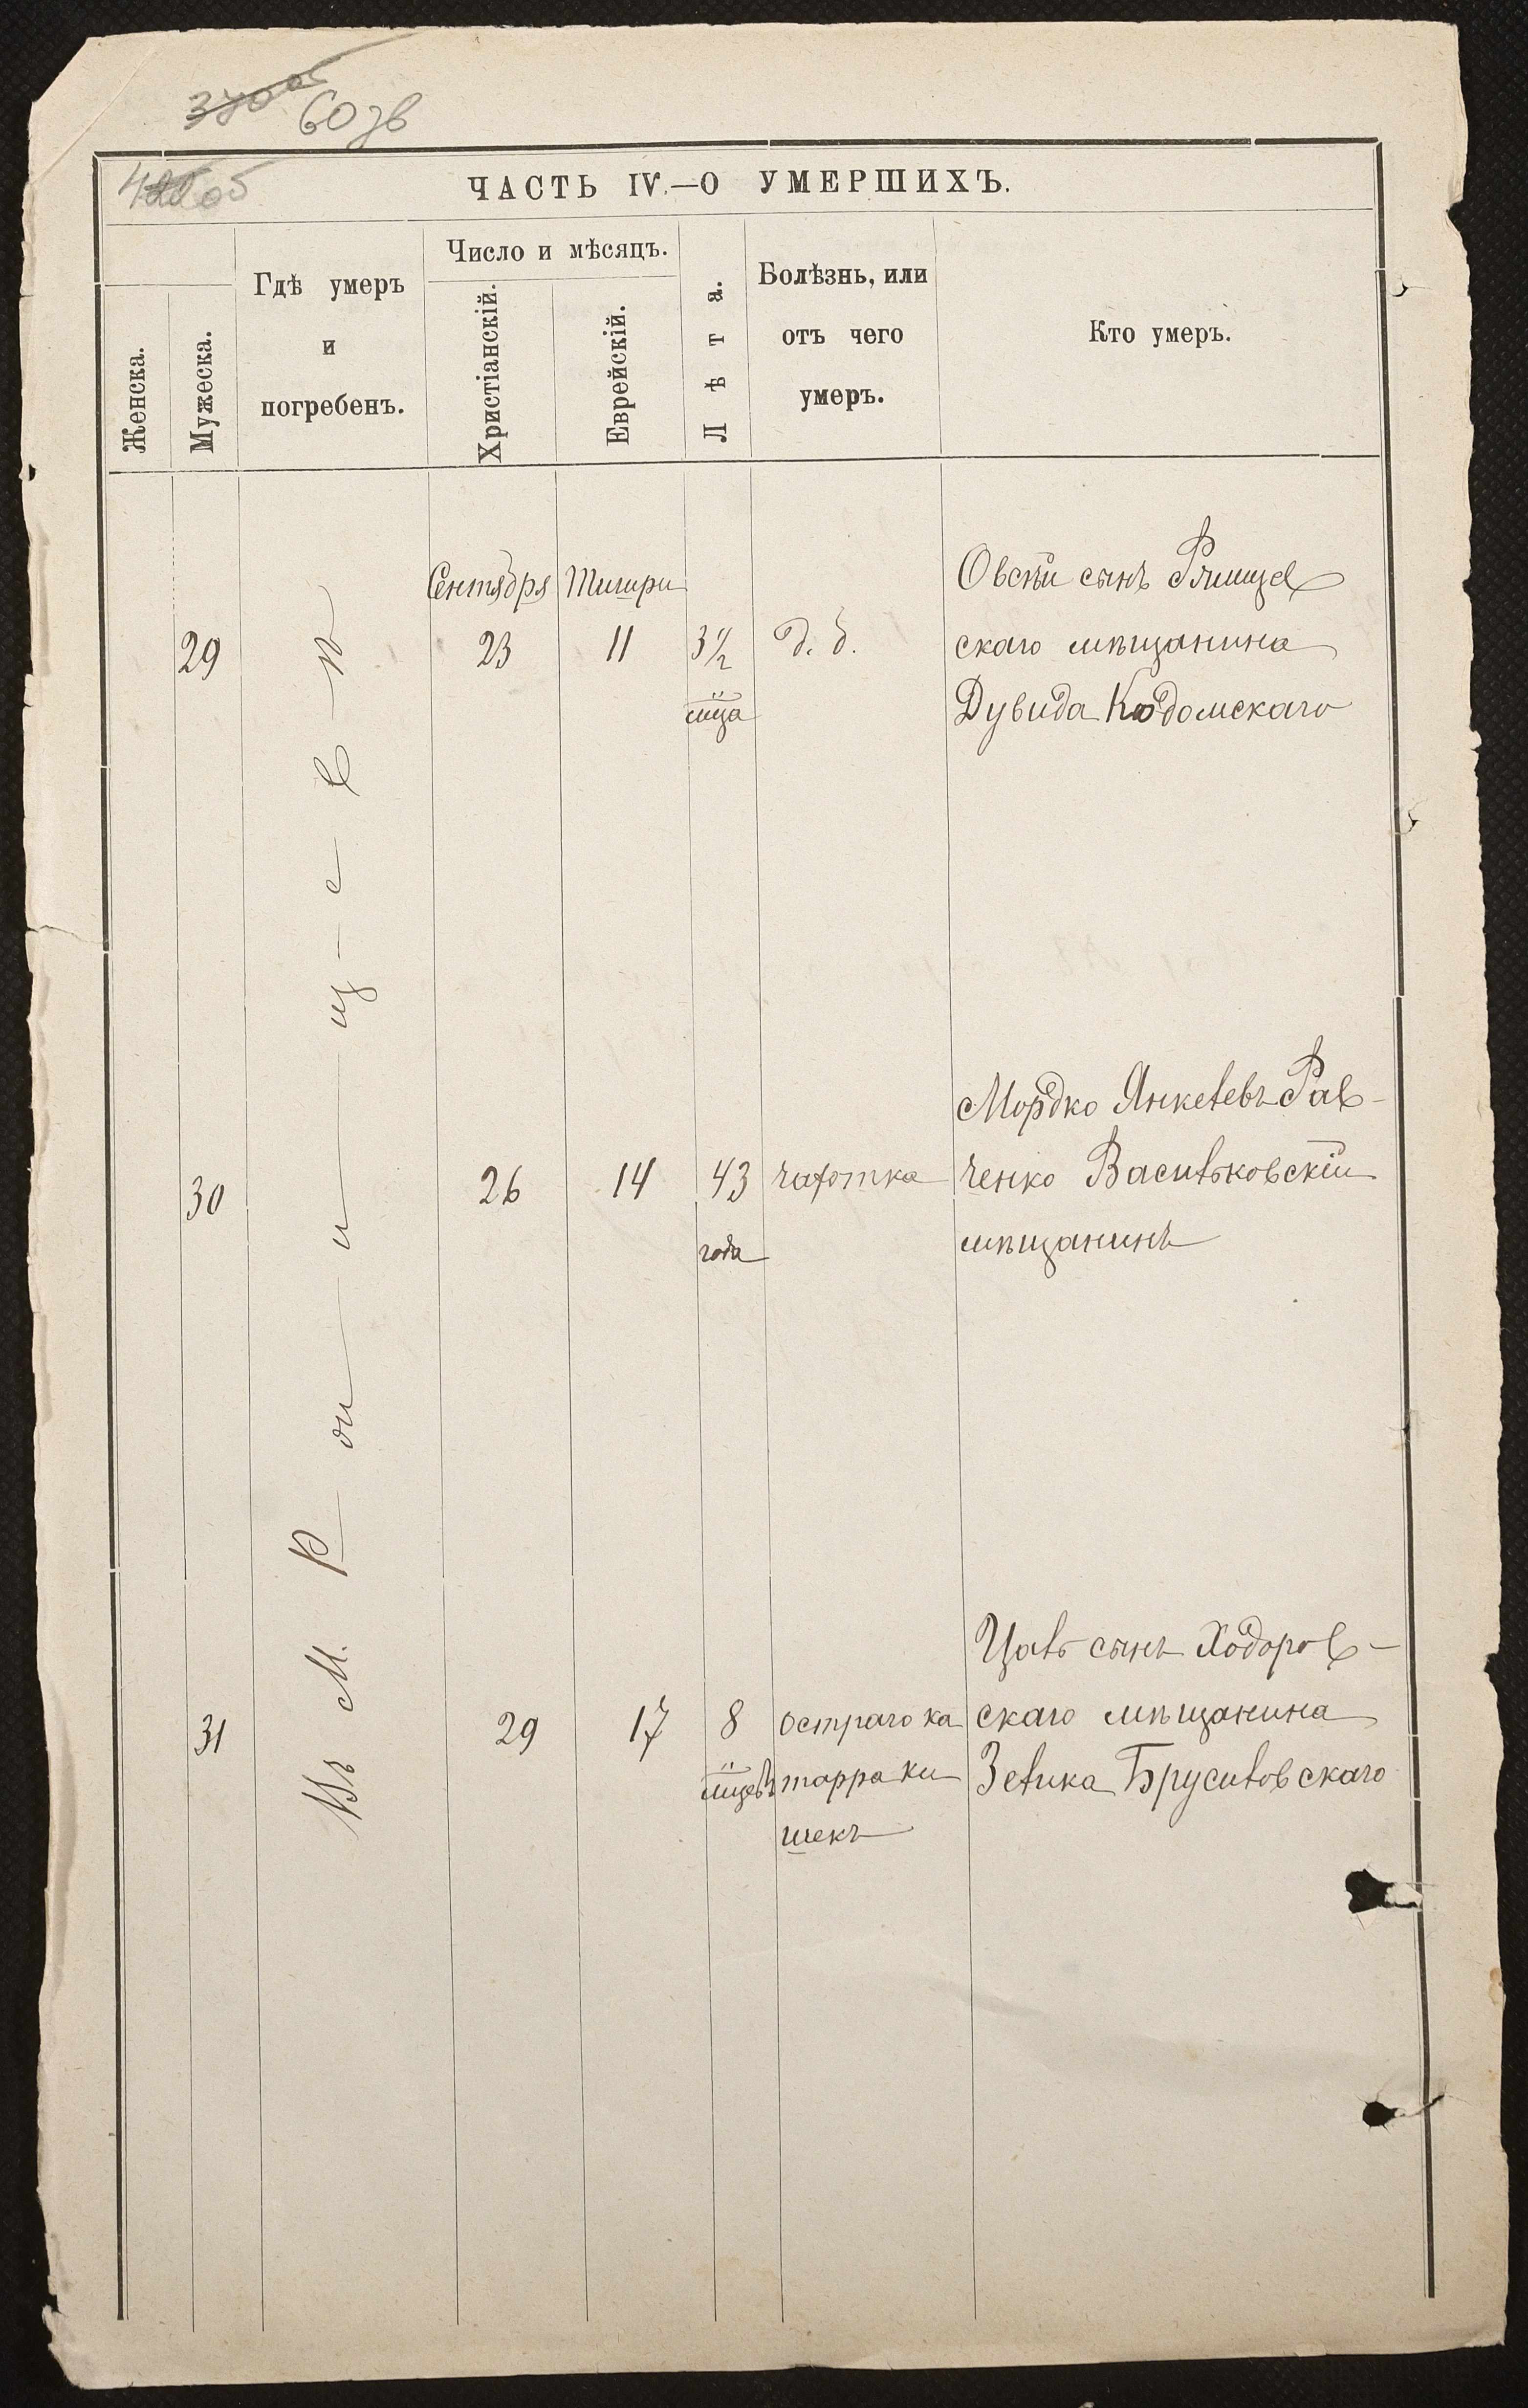 60 зв
ЧАСТЬ IV.—О УМЕРШИХЪ.
Женска.
Мужеска.
Гдѣ умеръ
и
погребенъ.
Число и мѣсяцъ.
Христіанскій.
Еврейскій.
Лѣта.
Болѣзнь, или
отъ чего
умеръ.
Кто умеръ.
Въ М. Ржищевѣ
Сентября Тишри
29 23 11 3 1/2 д. б.
м̃ца
Овсѣй сынъ Ржищев
скаго мѣщанина
Дувида Кодомскаго
30 26 14 43 чахотка
года
Мордко Янкелевъ Рав-
ченко Васильковскій
мѣщанинъ
31 29 17 8 остраго ка
м̃цевъ тарра ки
шекъ
Цаль сынъ Ходоров-
скаго мѣщанина
Зелика Брусиловскаго